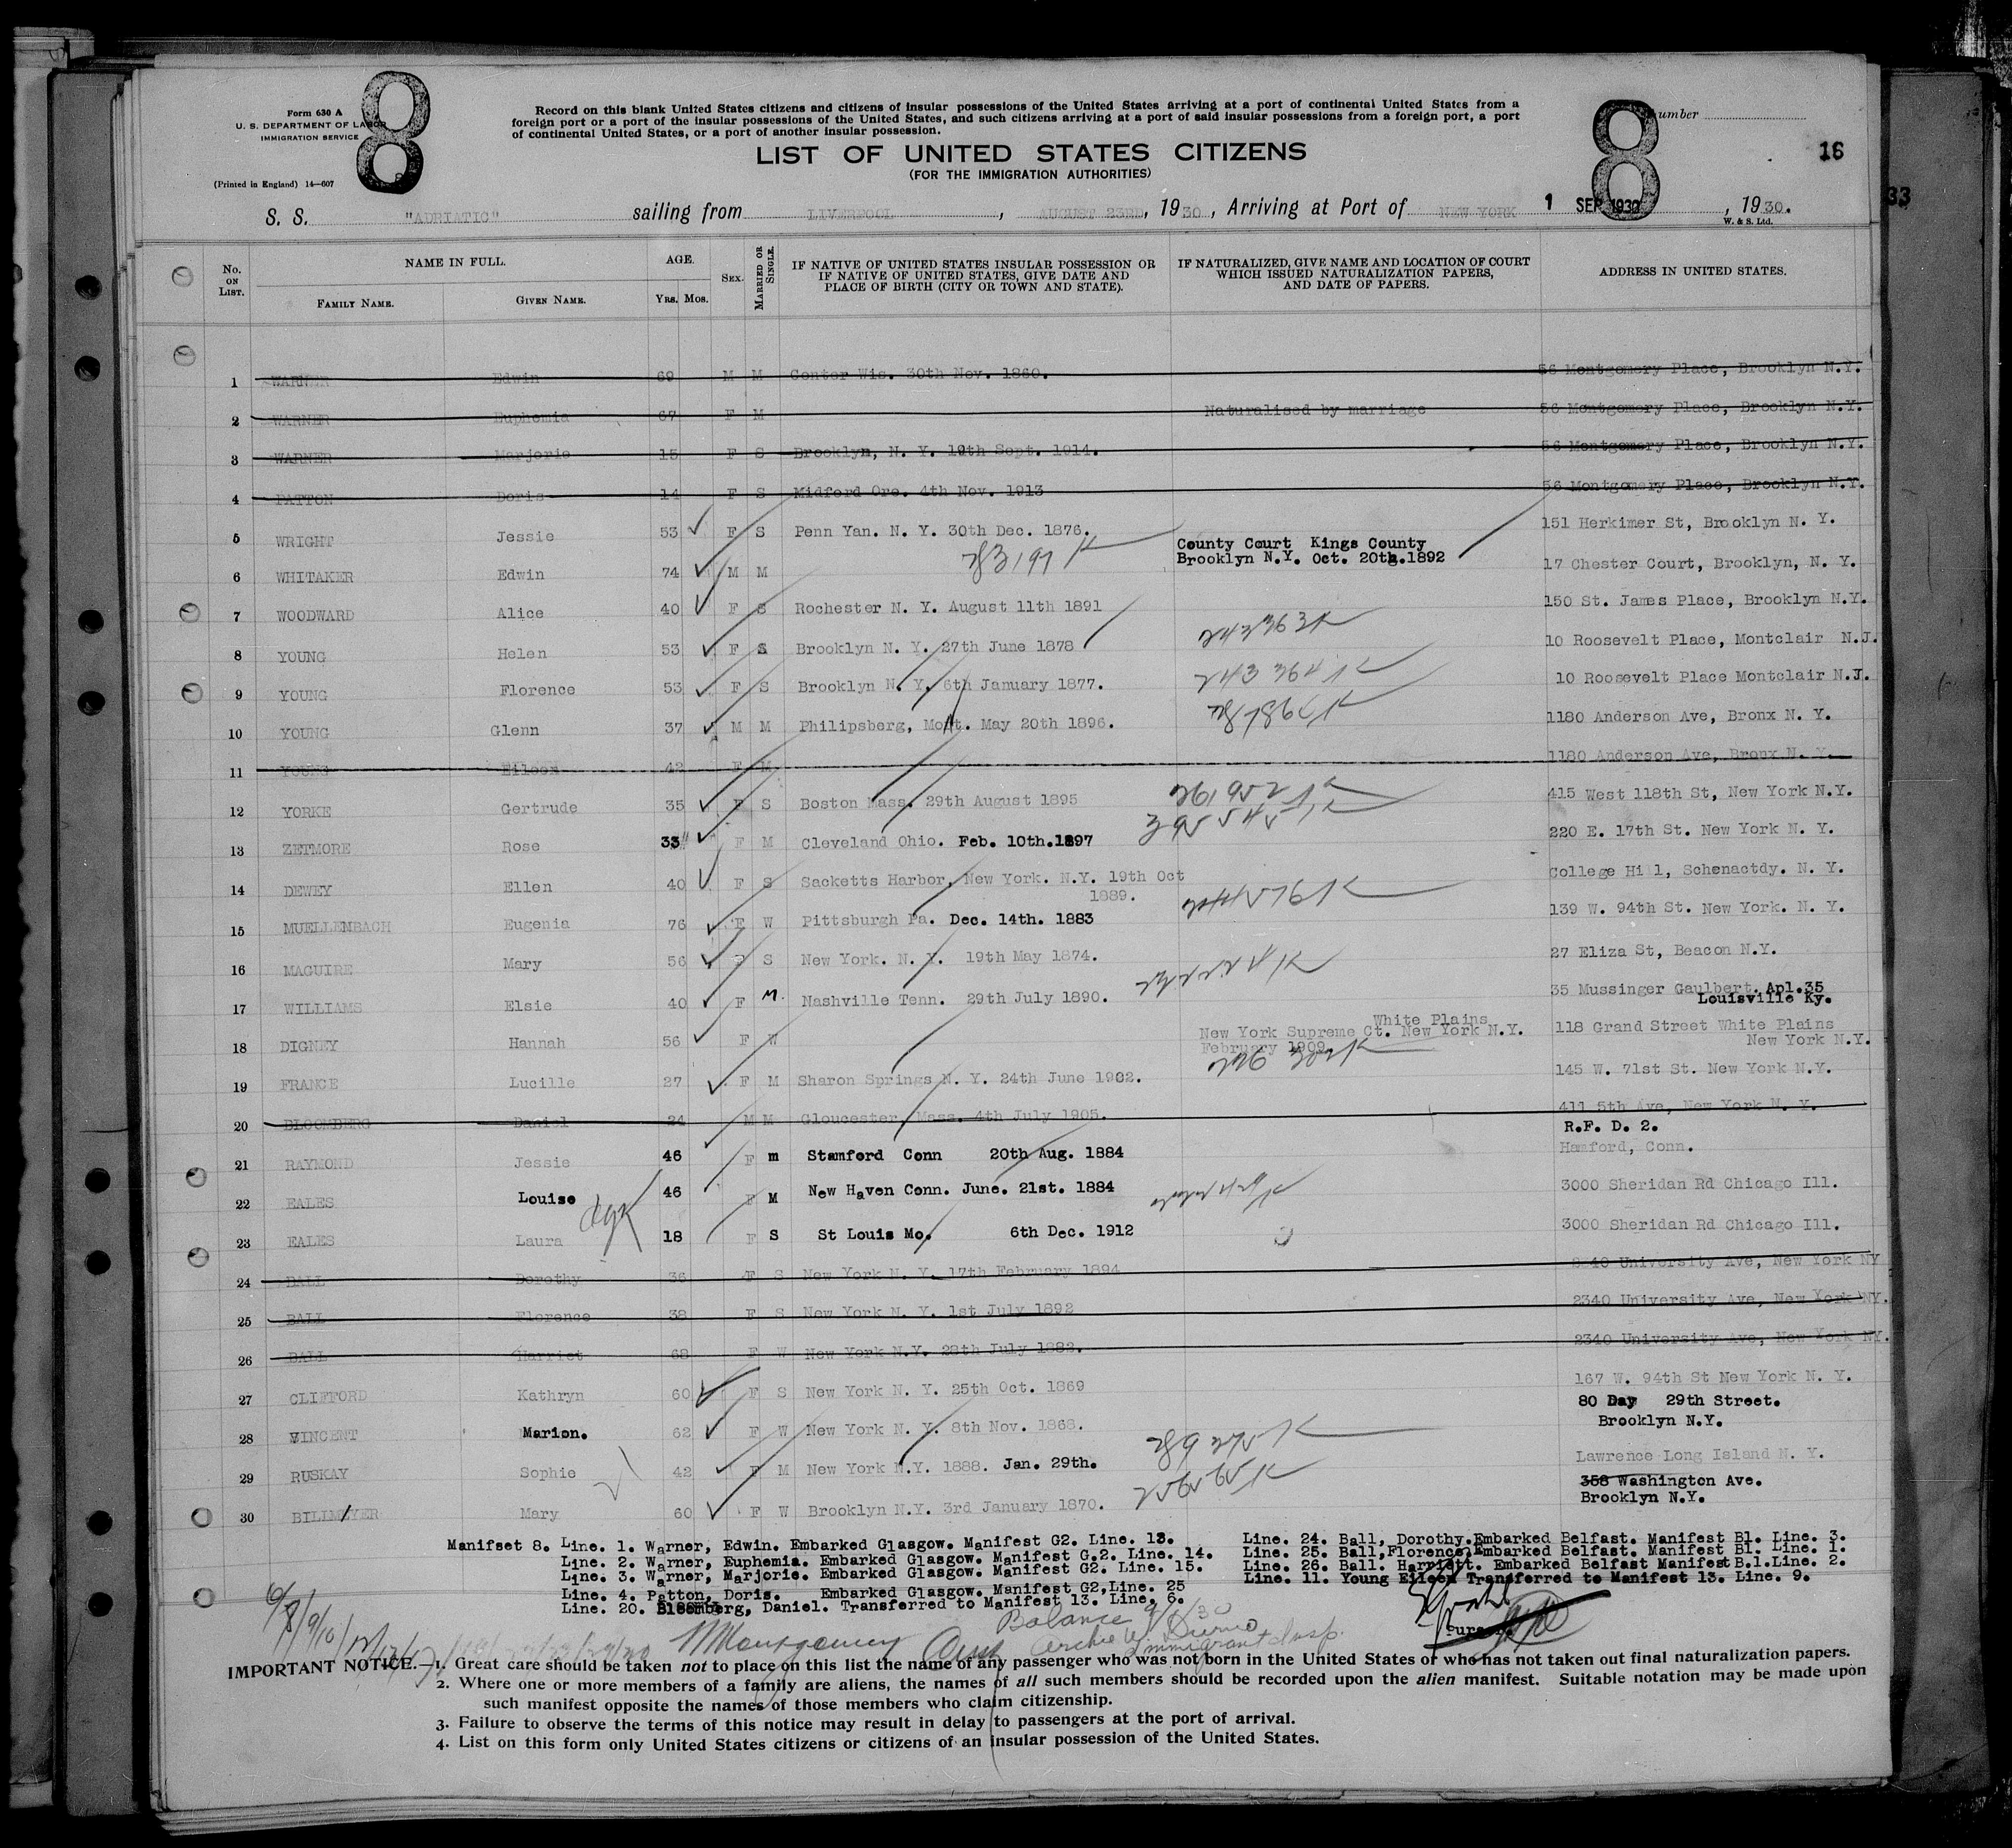 8
8
Form 630 A
U. S. DEPARTMENT OF LABOR
IMMIGRATION SERVICE
(Printed in England) 14—607
Record on this blank United States citizens and citizens of insular possessions of the United States arriving at a port of continental United States from a
foreign port or a port of the insular possessions of the United States, and such citizens arriving at a port of said insular possessions from a foreign port, a port
of continental United States, or a port of another insular possession.
Number
16
33
LIST OF UNITED STATES CITIZENS
(FOR THE IMMIGRATION AUTHORITIES)
S. S. "ADRIATIC" sailing from LIVERPOOL, AUGUST 23RD, 1930, Arriving at Port of NEW YORK 1 SEP 1930, 1930.
W. & S. Ltd.
No. ON LIST. NAME IN FULL. AGE. SEX. MARRIED OR SINGLE. IF NATIVE OF UNITED STATES INSULAR POSSESSION OR IF NATIVE OF UNITED STATES, GIVE DATE AND PLACE OF BIRTH (CITY OR TOWN AND STATE). IF NATURALIZED, GIVE NAME AND LOCATION OF COURT WHICH ISSUED NATURALIZATION PAPERS, AND DATE OF PAPERS. ADDRESS IN UNITED STATES.
FAMILY NAME. GIVEN NAME. YRS. MOS.
1 WARNER Edwin 69 M M Center Wis. 30th Nov. 1860. 56 Montgomery Place, Brooklyn N.Y.
2 WARNER Euphemia 67 F M Naturalised by marriage 56 Montgomery Place, Brooklyn N.Y.
3 WARNER Marjorie 15 F S Brooklyn, N. Y. 19th Sept. 1914. 56 Montgomery Place, Brooklyn N.Y.
4 PATTON Doris 14 F S Midford Ore. 4th Nov. 1913 56 Montgomery Place, Brooklyn N.Y.
5 WRIGHT Jessie 53 F S Penn Yan. N. Y. 30th Dec. 1876. 151 Herkimer St, Brooklyn N. Y.
County Court Kings County
6 WHITAKER Edwin 74 M M Brooklyn N.Y. Oct. 20th.1892 17 Chester Court, Brooklyn, N. Y.
7 WOODWARD Alice 40 F S Rochester N. Y. August 11th 1891 150 St. James Place, Brooklyn N.Y.
8 YOUNG Helen 53 F S Brooklyn N. Y. 27th June 1878 10 Roosevelt Place, Montclair N.J.
9 YOUNG Florence 53 F S Brooklyn N. Y. 6th January 1877. 10 Roosevelt Place Montclair N.J.
10 YOUNG Glenn 37 M M Philipsberg, Mont. May 20th 1896. 1180 Anderson Ave, Bronx N. Y.
11 YOUNG Eileen 42 F M 1180 Anderson Ave, Bronx N. Y.
12 YORKE Gertrude 35 F S Boston Mass. 29th August 1895 415 West 118th St, New York N.Y.
13 ZETMORE Rose 33 F M Cleveland Ohio. Feb. 10th.1897 220 E. 17th St. New York N. Y.
14 DEWEY Ellen 40 F S Sacketts Harbor, New York. N.Y. 19th Oct College Hill, Schenactdy. N. Y.
1889.
15 MUELLENBACH Eugenia 76 F W Pittsburgh Pa. Dec. 14th. 1883 139 W. 94th St. New York. N. Y.
16 MAGUIRE Mary 56 F S New York. N. Y. 19th May 1874. 27 Eliza St, Beacon N.Y.
17 WILLIAMS Elsie 40 F M. Nashville Tenn. 29th July 1890. 35 Mussinger Gaulbert. Apl.35
Louisville Ky.
White Plains
18 DIGNEY Hannah 56 F W New York Supreme Ct. New York N.Y. 118 Grand Street White Plains
February 1909. New York N.Y.
19 FRANCE Lucille 27 F M Sharon Springs N. Y. 24th June 1902. 145 W. 71st St. New York N.Y.
20 BLOOMBERG Daniel 24 M M Gloucester, Mass. 4th July 1905. 411 5th Ave, New York N. Y.
R.F. D. 2.
21 RAYMOND Jessie 46 F m Stamford Conn 20th Aug. 1884 Hamford, Conn.
22 EALES Louise 46 F M New Haven Conn. June. 21st. 1884 3000 Sheridan Rd Chicago Ill.
23 EALES Laura 18 F S St Louis Mo. 6th Dec. 1912 3000 Sheridan Rd Chicago Ill.
24 BALL Dorothy 36 F S New York N. Y. 17th February 1894 2340 University Ave, New York NY
25 BALL Florence 38 F S New York N. Y. 1st July 1892 2340 University Ave, New York NY.
26 BALL Harriet 68 F W New York N.Y. 28th July 1882. 2340 University Ave, New York NY.
27 CLIFFORD Kathryn 60 F S New York N. Y. 25th Oct. 1869 167 W. 94th St New York N. Y.
80 Day 29th Street.
28 VINCENT Marion. 62 F W New York N. Y. 8th Nov. 1868. Brooklyn N.Y.
29 RUSKAY Sophie 42 F M New York N.Y. 1888. Jan. 29th. Lawrence Long Island N. Y.
358 Washington Ave.
30 BILLMYER Mary 60 F W Brooklyn N.Y. 3rd January 1870. Brooklyn N.Y.
Manifset 8. Line. 1. Warner, Edwin. Embarked Glasgow. Manifest G2. Line. 13.
Line. 2. Warner, Euphemia. Embarked Glasgow. Manifest G.2. Line. 14.
Line. 3. Warner, Marjorie. Embarked Glasgow. Manifest G2. Line. 15.
Line. 4. Patton, Doris. Embarked Glasgow. Manifest G2, Line. 25
Line. 20. Bloomberg, Daniel. Transferred to Manifest 13. Line. 6.
Line. 24. Ball, Dorothy. Embarked Belfast. Manifest B1. Line. 3.
Line. 25. Ball, Florence. Embarked Belfast. Manifest B1. Line. 1.
Line. 26. Ball. Harriett. Embarked Belfast Manifest B.1. Line. 2.
Line. 11. Young Eileen Transferred to Manifest 13. Line. 9.
Balance 9/1/30
Montgomery
Immigrant Insp.
Purser.
IMPORTANT NOTICE.—1. Great care should be taken not to place on this list the name of any passenger who was not born in the United States or who has not taken out final naturalization papers.
2. Where one or more members of a family are aliens, the names of all such members should be recorded upon the alien manifest. Suitable notation may be made upon
such manifest opposite the names of those members who claim citizenship.
3. Failure to observe the terms of this notice may result in delay to passengers at the port of arrival.
4. List on this form only United States citizens or citizens of an insular possession of the United States.